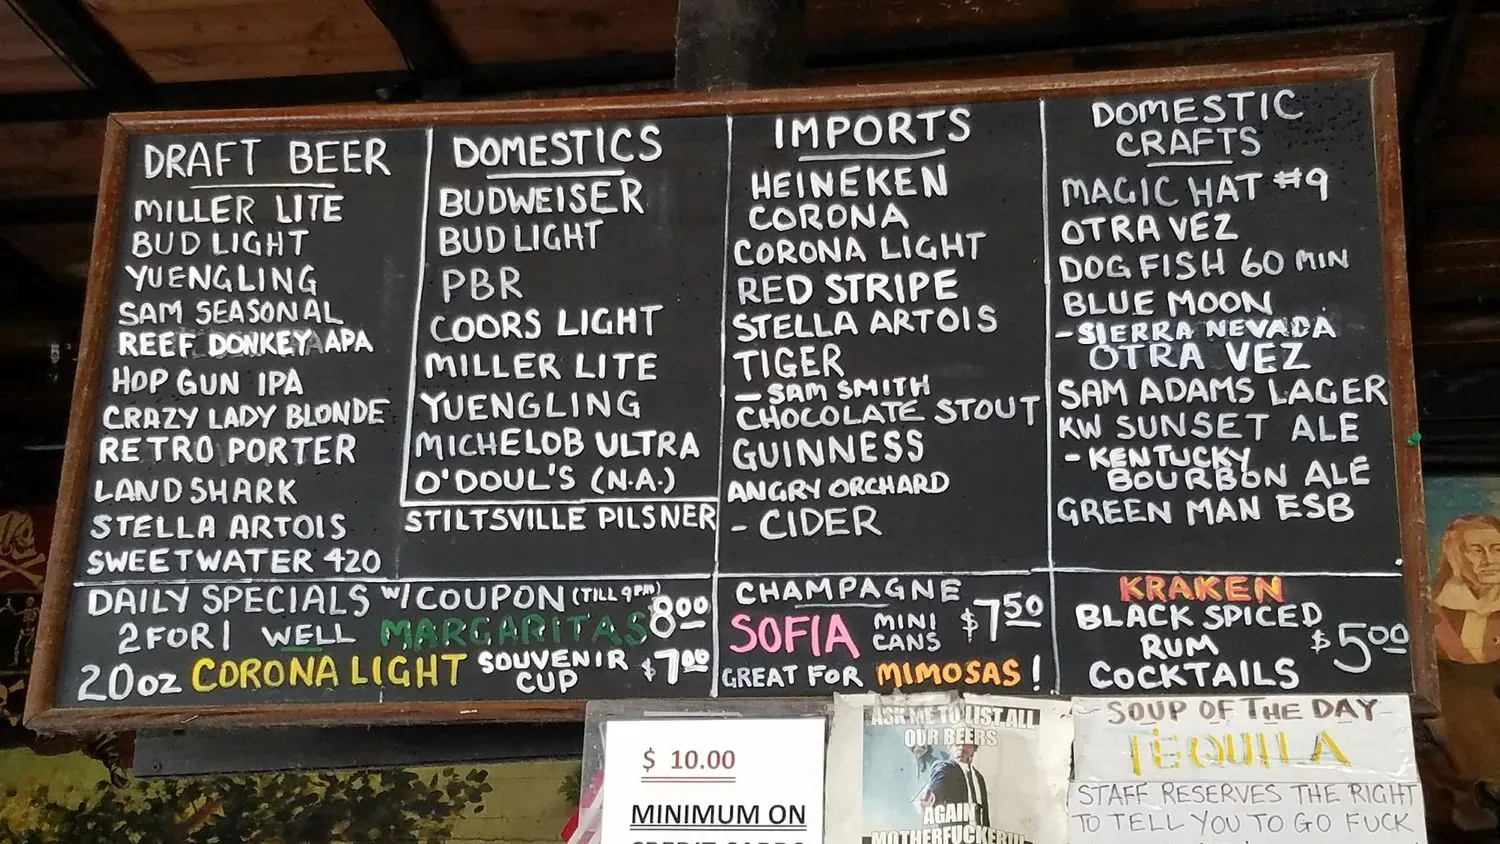 DRAFT BEER
MILLER LITE
BUD LIGHT
YUENGLING
SAM SEASONAL
REEF DONKEY APA
HOP GUN IPA
CRAZY LADY BLONDE
RETRO PORTER
LANDSHARK
STELLA ARTOIS
SWEETWATER 420
DOMESTICS
BUDWEISER
BUD LIGHT
PBR
COORS LIGHT
MILLER LITE
YUENGLING
MICHELOB ULTRA
O'DOUL'S (N.A.)
STILTSVILLE PILSNER
IMPORTS
HEINEKEN
CORONA
CORONA LIGHT
RED STRIPE
STELLA ARTOIS
TIGER
- SAM SMITH
CHOCOLATE STOUT
GUINNESS
ANGRY ORCHARD
- CIDER
DOMESTIC
CRAFTS
MAGIC HAT #9
OTRA VEZ
DOGFISH 60 MIN
BLUE MOON
- SIERRA NEVADA
OTRA VEZ
SAM ADAMS LAGER
KW SUNSET ALE
- KENTUCKY
BOURBON ALE
GREEN MAN ESB
DAILY SPECIALS W/ COUPON (TILL 9PM)
2 FOR 1 WELL MARGARITAS 800
20oz CORONA LIGHT SOUVENIR CUP $7.00
CHAMPAGNE
SOFIA MINI CANS $7.50
GREAT FOR MIMOSAS!
KRAKEN
BLACK SPICED
RUM
COCKTAILS $500
$ 10.00
MINIMUM ON
CREDIT CARDS
ASK ME TO LIST ALL
OUR BEERS
AGAIN
MOTHERFUCKER!!!
SOUP OF THE DAY
TEQUILA
STAFF RESERVES THE RIGHT
TO TELL YOU TO GO FUCK